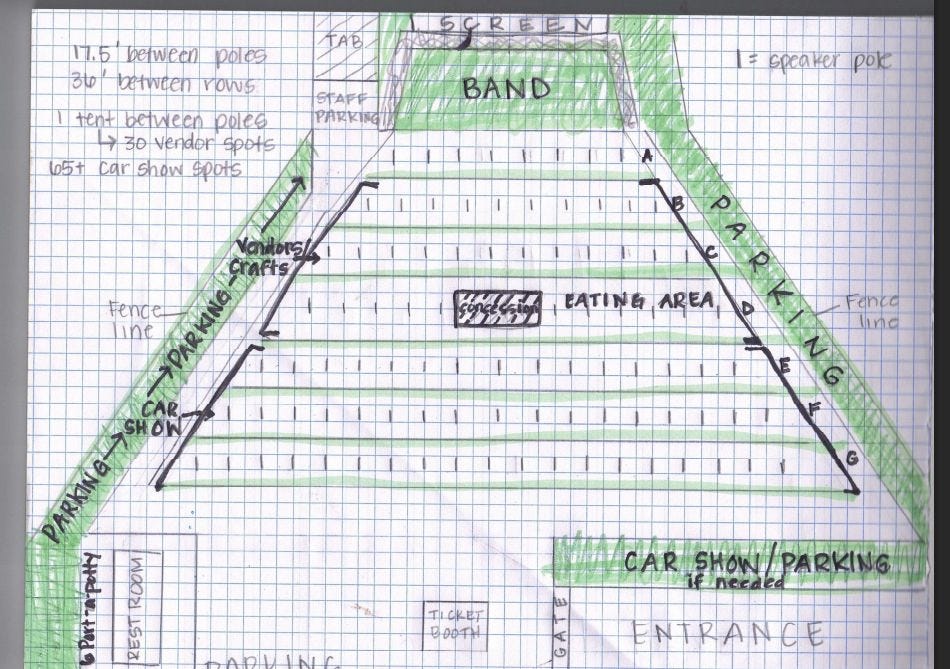 SCREEN
TAB
17.5' between poles
36' between rows
1 tent between poles
↳ 30 vendor spots
65+ car show spots
| = speaker pole
BAND
STAFF
PARKING
A
B
C
D
E
F
G
PARKING
Vendors/
Crafts
Fence
line
PARKING
concession
EATING AREA
Fence
line
CAR
SHOW
PARKING
CAR SHOW/PARKING
if needed
6 Port-a-potty
REST ROOM
TICKET
BOOTH
GATE
ENTRANCE
PARKING